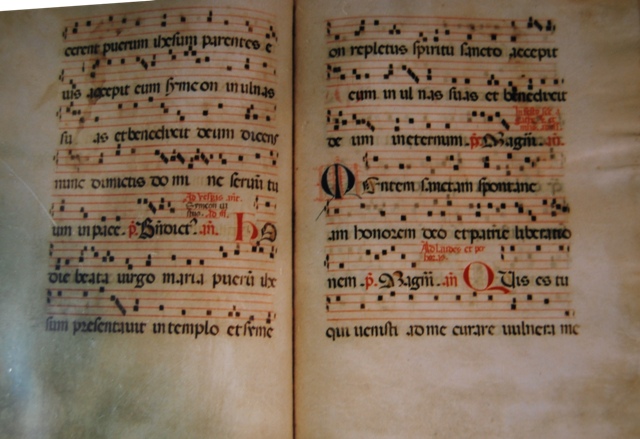 cerent puerum ihesum parentes e
ius accepit eum symeon in ulnas
su as et benedixit deum dicens
nunc dimictis do mi ne seruum tu
um in pace. p. Bñdict'. añ. Ho
die beata uirgo maria puerũ ihe
sum presentauit in templo et syme
on repletus spiritu sancto accepit
eum in ul nas suas et benedixit
de um in eternum. p. Magñi. añ.
Mentem sanctam spontane
am honorem deo et patrie liberatio
nem. p. Magñi. añ Quis es tu
qui uenisti ad me curare uulnera me